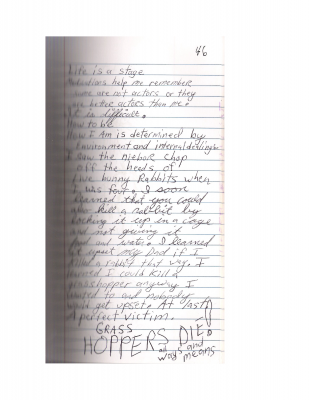 46
Life is a stage
Medications help me remember
some are not actors or they
are better actors than me.
It is difficult.
How to be
Who I Am is determined by
Environment and internal dealings
I saw the niebor chop
off the heeds of
five bunny Rabbits when
I was four. I soon
learned that you could
also kill a rabbit by
locking it up in a cage
and not giveing it
food and water. I learned
it upset my Dad if I
killed a rabbit that way. I
learned I could kill a
grasshopper anyway I
wanted to and nobody
would get upset. At last
A perfect victim.
GRASS
HOPPERS DIE!
ways and
means